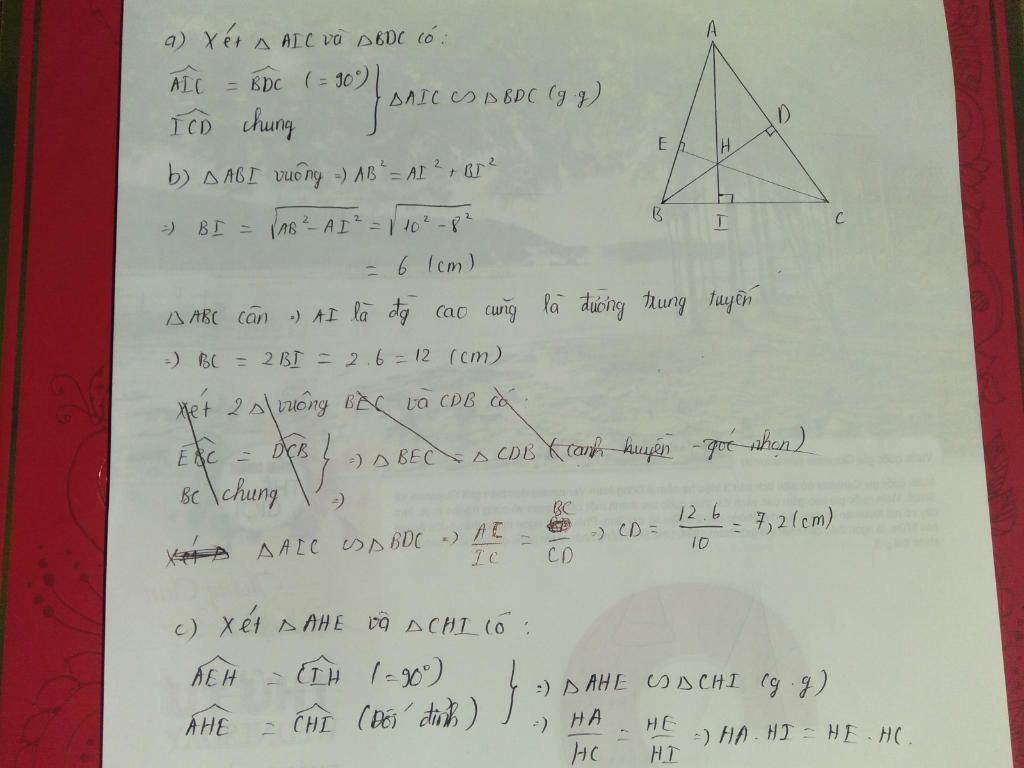 a) Xét △ AIC và △BDC có:
AIC = BDC (= 90°)
ICD chung
} △AIC ∽ △BDC (g.g)
b) △ABI vuông => AB² = AI² + BI²
=> BI = √AB² – AI² = √10² – 8²
= 6 (cm)
△ABC cân => AI là đg cao cũng là đường trung tuyến
=> BC = 2BI = 2.6 = 12 (cm)
Xét 2 △ vuông BEC và CDB có
EBC = DCB } => △BEC = △CDB (cạnh huyền - góc nhọn)
BC chung =>
Xét △ △AIC ∽ △BDC => AC/IC = BC/CD => CD = 12.6/10 = 7,2 (cm)
c) Xét △AHE và △CHI có:
AEH = CIH (= 90°)
AHE = CHI (Đối đỉnh)
} => △AHE ∽ △CHI (g.g)
=> HA/HC = HE/HI => HA.HI = HE.HC.
A
D
E
H
B
I
C